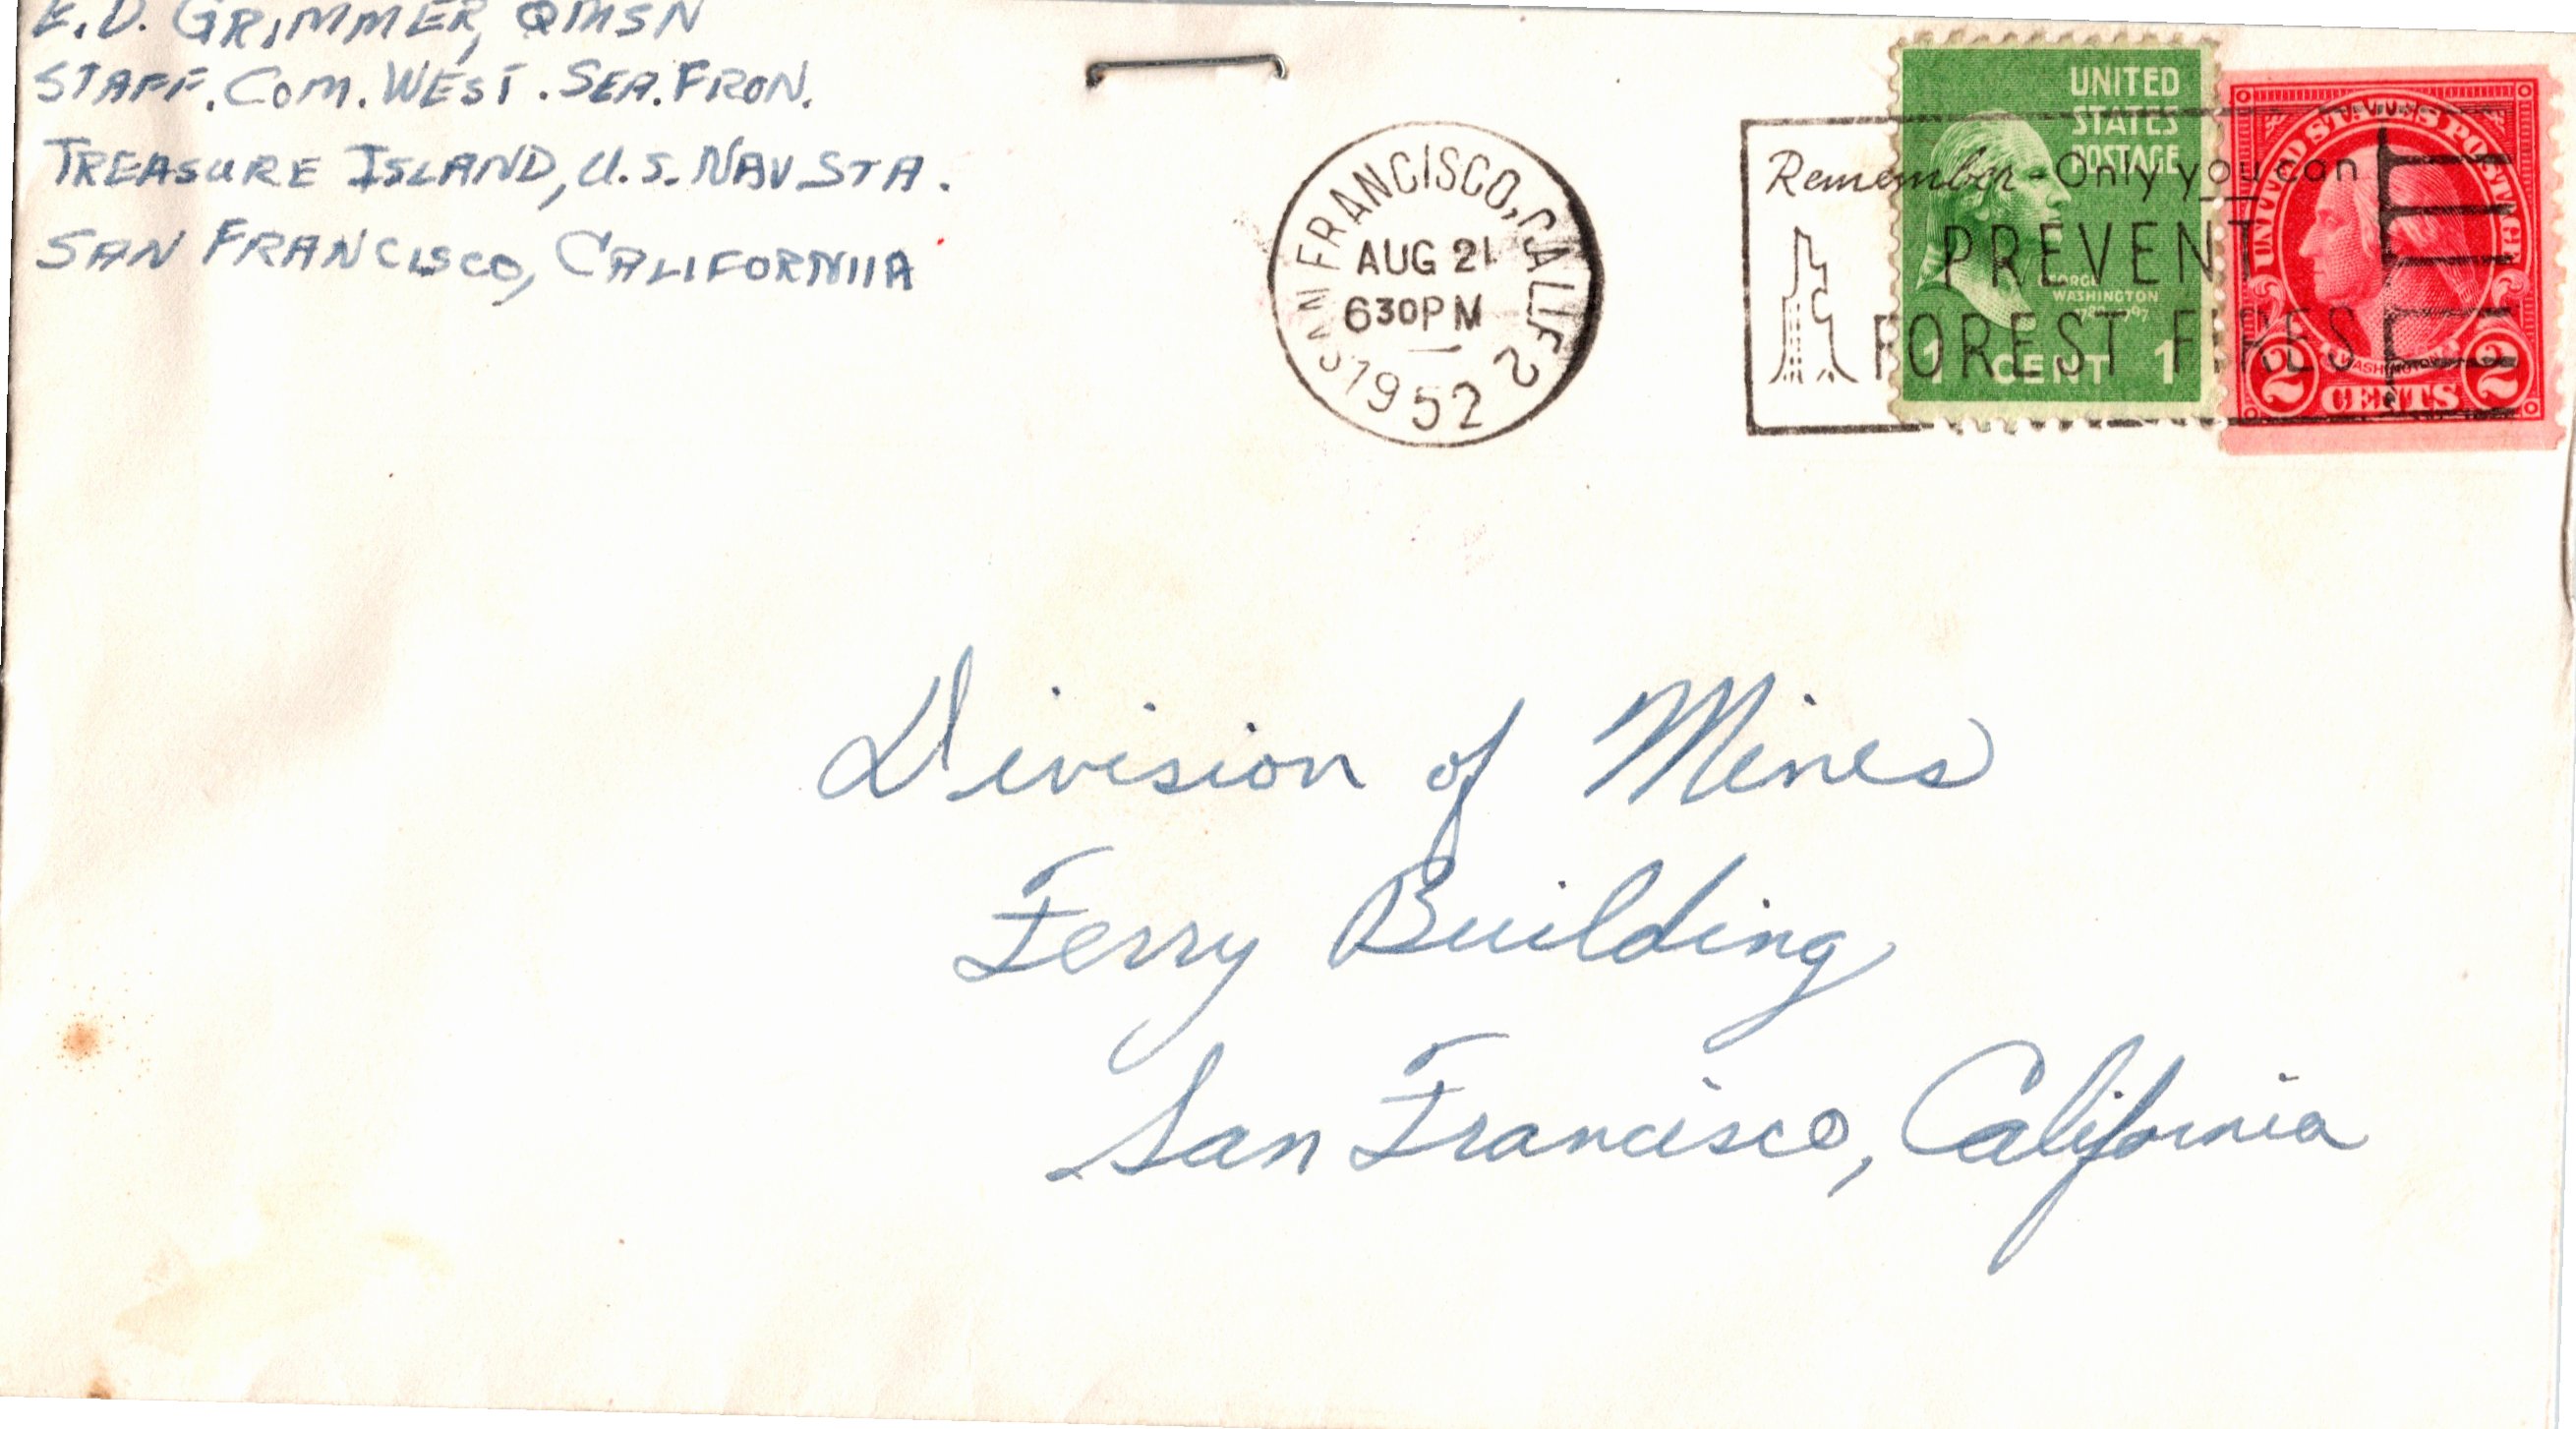 E. D. GRIMMER, QMSN
STAFF. COM. WEST. SEA. FRON.
TREASURE ISLAND, U.S. NAV STA.
SAN FRANCISCO, CALIFORNIIA
SAN FRANCISCO, CALIF 2
AUG 21
630 PM
1952
Remember - Only you can
PREVENT
FOREST FIRES
UNITED
STATES
POSTAGE
GEORGE
WASHINGTON
1789 1797
1 CENT 1
UNITED STATES POSTAGE
WASHINGTON
2 CENTS 2
Division of Mines
Ferry Building
San Francisco, California